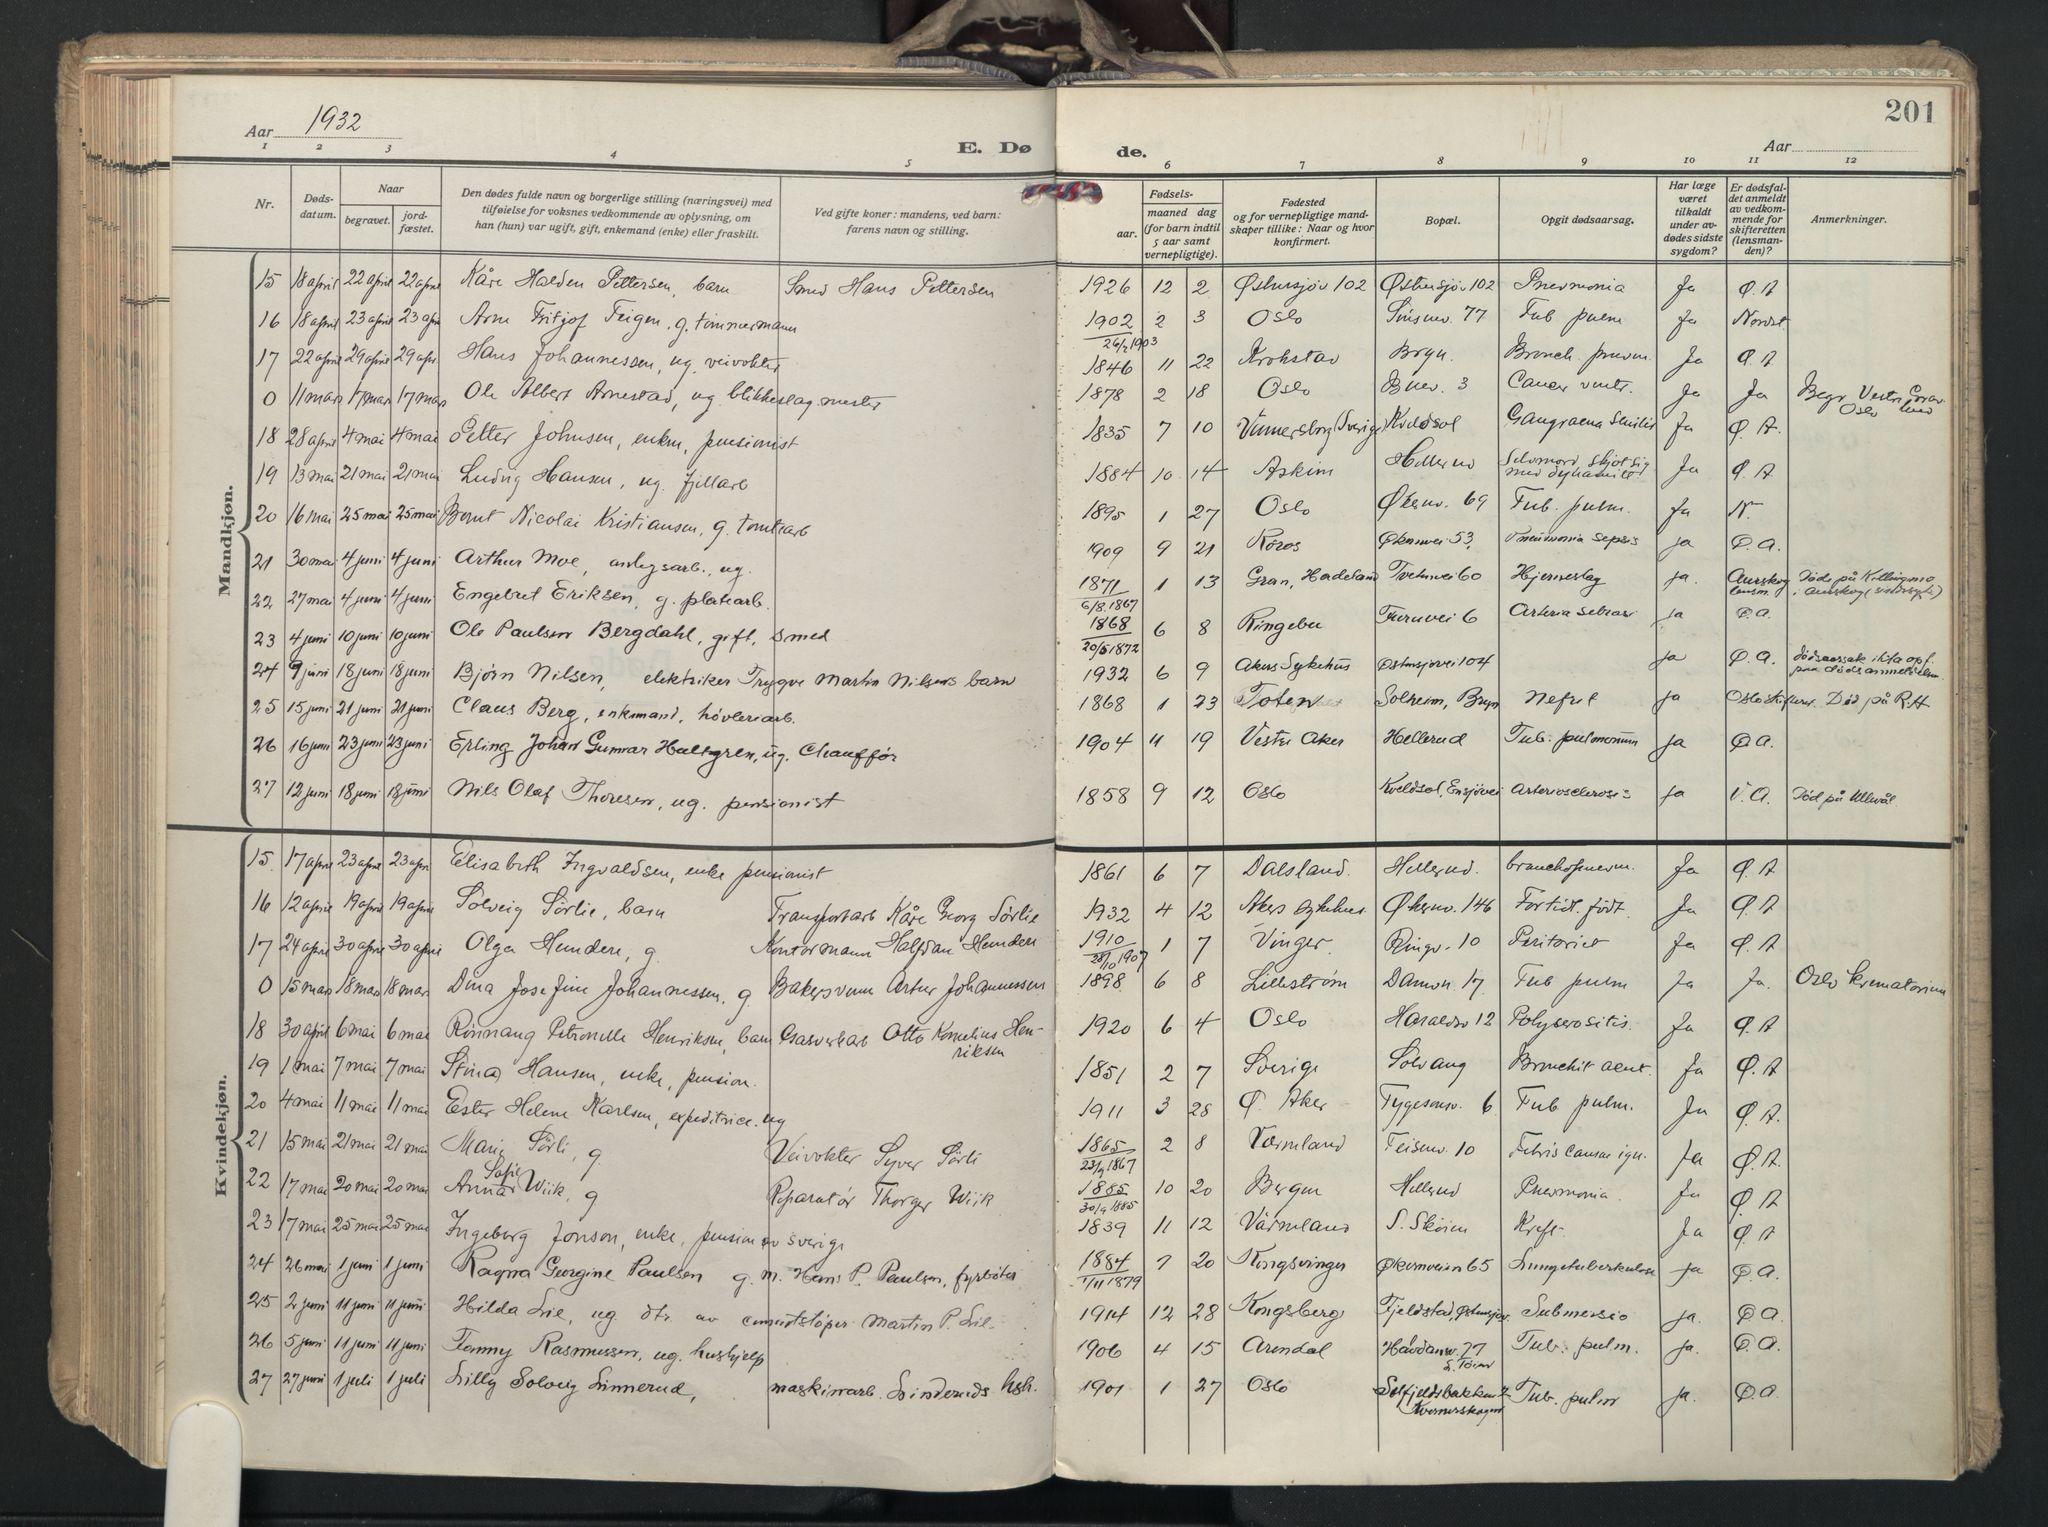 Aar 1932
E. Dø
de.
Aar
201
1 2 3 4 5 6 7 8 9 10 11 12
Nr.
Døds-
datum.
Naar
begravet.
jord-
fæstet.
Den dødes fulde navn og borgerlige stilling (næringsvei) med
tilføielse for voksnes vedkommende av oplysning, om
han (hun) var ugift, gift, enkemand (enke) eller fraskilt.
Ved gifte koner: mandens, ved barn:
farens navn og stilling.
Fødsels-
aar.
maaned dag
(for barn indtil
5 aar samt
vernepligtige).
Fødested
og for vernepligtige mand-
skaper tillike: Naar og hvor
konfirmert.
Bopæl.
Opgit dødsaarsag.
Har læge
været
tilkaldt
under av-
dødes sidste
sygdom?
Er dødsfal-
det anmeldt
av vedkom-
mende for
skifteretten
(lensman-
den)?
Anmerkninger.
Mandkjøn.
15 18 april 22 april 22 april Kåre Halden Pettersen, barn Smed Hans Pettersen 1926 12 2 Østensjøv 102 Østensjøv 102 Pnevmonia Ja Ø. A
16 18 april 23 april 23 apr Arne Fritjof Teigen, g. tømmermann 1902 2 3 Oslo Sinsenv. 77 Tub pulm Ja Nordst
17 22 april 29 april 29 apr. Hans Johannessen, ug. veivokter 1846 11 22 Krokstad Bryn. Bronch. pnevm. Ja Ø A
0 11 mars 17 mars 17 mars Ole Albert Arnestad, ug. blikkeslag.mester 1878 2 18 Oslo Buev. 3 Cancer ventr. Ja Ja Begr. Vestre Grav-
lund Oslo
18 28 april 4 mai 4 mai Petter Johnsen, enkm, pensionist 1835 7 10 Vennersborg (Sverige) Kveldsol Gangraena senilis Ja Ø. A.
19 13 mai 21 mai 21 mai Ludvig Hansen, ug. fjellarb 1884 10 14 Askim Hellerud Selvmord skjøt sig
med dynamitt Ja Ø A
20 16 mai 25 mai 25 mai Bernt Nicolai Kristiansen, g. tomtearb 1895 1 27 Oslo Økernv. 69 Tub. pulm. Ja N.
21 30 mai 4 juni 4 juni Arthur Moe, anlegsarb., ug. 1909 9 21 Røros Økernvei 53, Pneumonia sepsis ja Ø.A.
22 27 mai 4 juni 4 juni Engebret Eriksen, g. platearb. 1871 1 13 Gran, Hadeland Tvetenvei 60 Hjerneslag ja. Aurskog
lensm. Død på Killingmo
i Aurskog (sindssyke)
6/8 1867
23 4 juni 10 juni 10 juni Ole Paulsen Bergdahl, gift, smed 1868 6 8 Ringebu Furuvei 6 ja Ø.A.
20/5 1872
24 9 juni 18 juni 18 juni Bjørn Nilsen, elektriker Trygve Martin Nilsens barn 1932 6 9 Akers Sykehus Østensjøvei 104 ja Ø.A. dødsaarsak ikke opf.
paa dødsanmeldelsen
25 15 juni 21 juni 21 juni Claus Berg, enkemand, høvleriarb. 1868 1 23 Toten Solheim, Bryn Nefrit ja Oslo skifter. Død på R.H
26 16 juni 23 juni 23 juni Erling Johan Gunnar Hultgren, ug. Chauffør 1904 11 19 Vestre Aker Hellerud Tub. pulmonum ja Ø A.
27 12 juni 18 juni 18 juni Nils Olaf Thoresen, ug. pensionist 1858 9 12 Oslo Kveldsol, Ensjøvei Arteriosclerosis ja V.A. Død på Ullevål
Kvindekjøn.
15. 17 april 23 april 23 apri Elisabeth Ingvaldsen, enke pensionist 1861 6 7 Dalsland. Hellerud. bronchopnevm. Ja Ø. A
16 12 april 19 april 19 april Solveig Sørlie, barn Transportarb Kåre Georg Sørlie 1932 4 12 Akers sykehus Økernv. 146 For tidl. født. Ja Ø. A
17 24 april 30 april 30 april Olga Hundere, g. Kontormann Halfdan Hundere 1910 1 7 Vinger. Ringv. 10 Peritonit Ja Ø. A
28/10 1907
0 15 mars 18 mars 18 mars Dina Josefine Johannessen, g Bakersvenn Artur Johannessen 1898 6 8 Lillestrøm Damv. 17. Tub pulm Ja Ja. Oslo krematorium
18 30 april 6 mai 6 mai Rønnaug Petronelle Henriksen, barn Gasverkarb Otto Kornelius Hen-
riksen 1920 6 4 Oslo Haraldsv 12 Polyserositis. Ja Ø. A
19 1 mai 7 mai 7 mai Stina Hansen, enke, pension. 1851 2 7 Sverige Solvang Bronchit acut. Ja Ø. A
20 4 mai 11 mai 11 mai Ester Helene Karlsen, expeditrice. ug 1911 3 28 Ø. Aker Tygesonsv. 6 Tub pulm. Ja Ø. A
21 15 mai 21 mai 21 mai Marie Sørli, g. Veivokter Syver Sørli 1865 2 8 Værmland Teisenv. 10 Febris causae ign. Ja Ø. A.
23/9 1867
22 17 mai 20 mai 20 mai Anna Sofie Wiik, g Reparatør Thorger Wiik 1885 10 20 Bergen Hellerud Pnevmonia. Ja Ø. A
30/9 1885
23 17 mai 25 mai 25 mai Ingeborg Jonson, enke, pension av Sverige 1839 11 12 Värmland S. Skøien Kreft. Ja Ø. A
24 26 mai 1 juni 1 juni Ragna Georgine Paulsen g. m. Hans P. Paulsen, fyrbøter 1884 7 20 Kongsvinger Økernveien 65 Lungetuberkulose ja Ø.A.
1/11 1879
25 2 juni 11 juni 11 juni Hilda Lie, ug. dtr. av cementstøper Martin P. Lie 1914 12 28 Kongsberg Fjeldstad, Østensjøv. Submersio ja. Ø A.
26 5 juni 11 juni 11 juni Fanny Rasmussen, ug. hushjelp 1906 4 15 Arendal Havdanv. 27
S. Tøien Tub. pulm. ja. Ø.A.
27 27 juni 1 juli 1 juli Lilly Solveig Linnerud, maskinarb. Linderuds hsh. 1901 1 27 Oslo Solfjeldsbakken 2
Kvernerskogen Tub. pulm ja. Ø.A.